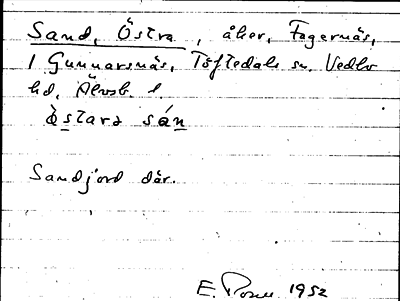 Sand, Östra, åker, Fagernäs,
1 Gunnarsnäs, Töftedals sn. Vedbo
hd. Älvsb. l.
östara sán
Sandjord där.
E. 1952